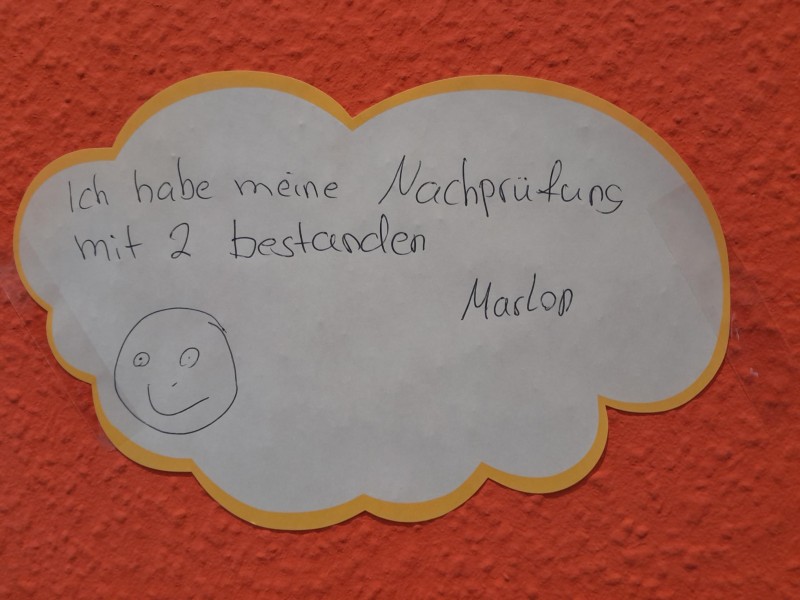 Ich habe meine Nachprüfung
mit 2 bestanden
Marlon